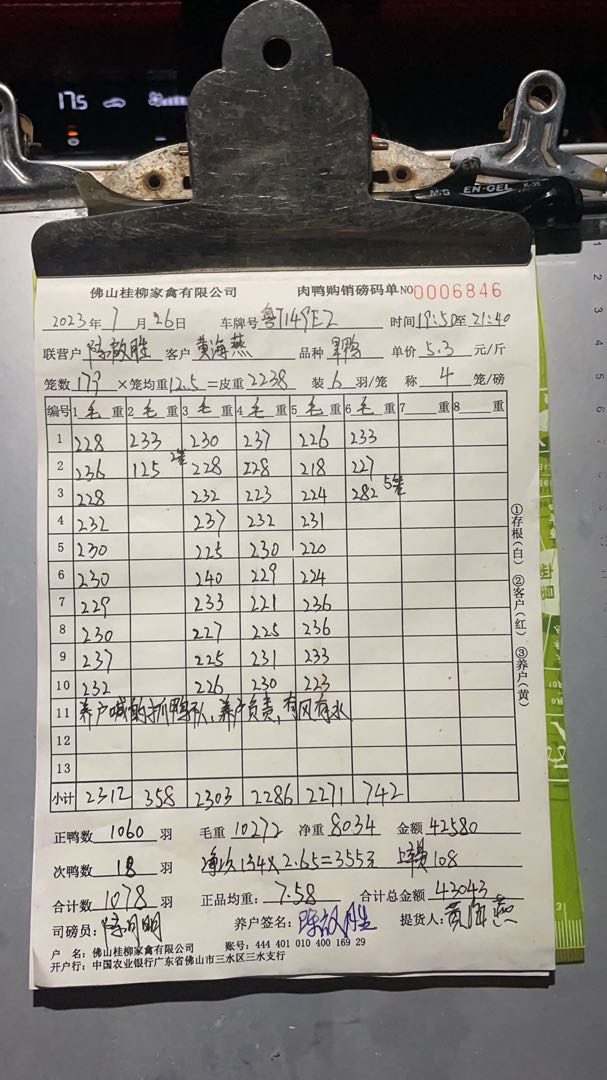 175
M&G EN-GEL K-35
佛山桂柳家禽有限公司 肉鸭购销磅码单 NO 0006846
2023年7月26日 车牌号 粤T149E2 时间 19:50至21:40
联营户 陈啟胜 客户 黄海燕 品种 旱鸭 单价 5.3 元/斤
笼数 179 ×笼均重 12.5 =皮重 2238 装 6 羽/笼 称 4 笼/磅
编号 1 毛 重 2 毛 重 3 毛 重 4 毛 重 5 毛 重 6 毛 重 7 重 8 重
1 228 233 230 237 226 233
2 236 125 2笼 228 228 218 227
3 228 232 223 224 282 5笼
4 232 237 232 231
5 230 225 230 220
6 230 240 229 224
7 229 233 221 236
8 230 227 225 236
9 237 225 231 233
10 232 226 230 223
11 养户喊的抓鸭队、养户负责,有风有水
12
13
小计 2312 358 2303 2286 2271 742
正鸭数 1060 羽 毛重 10272 净重 8034 金额 42580
次鸭数 18 羽 134×2.65=355元 108
合计数 1078 羽 正品均重: 7.58 合计总金额 43043
司磅员: 养户签名: 陈啟胜 提货人: 黄海燕
户 名: 佛山桂柳家禽有限公司 账号: 444 401 010 400 169 29
开户行: 中国农业银行广东省佛山市三水区三水支行
①存根(白) ②客户(红) ③养户(黄)